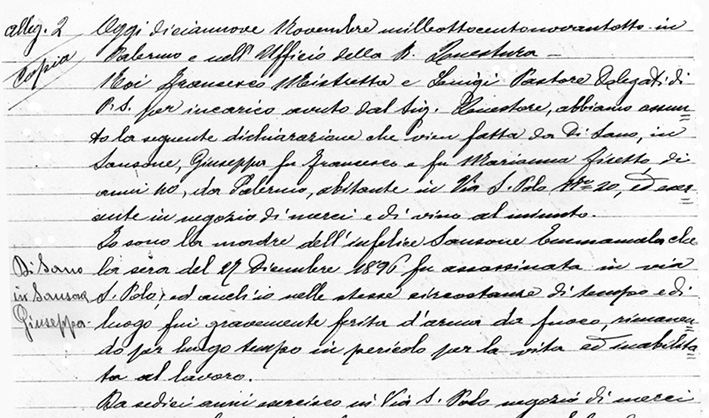 alleg. 2
Copia
Oggi diciannove Novembre milleottocentonovantotto in
Palermo e nell'Ufficio della R. Questura —
Noi Francesco Mistretta e Luigi Pastore Delegati di
P.S. per incarico avuto dal Sig. Questore, abbiamo assun=
to la seguente dichiarazione che vien fatta da Di Sano, in
Sansone, Giuseppa fu Francesco e fu Marianna Ficetto, di
anni 40, da Palermo, abitante in Via S. Polo Nro 20, ed eser=
cente in negozio di merci e di vino al minuto.
Io sono la madre dell'infelice Sansone Emmanuela che
la sera del 27 Dicembre 1896 fu assassinata in via
S. Polo, ed anch'io nelle stesse circostanze di tempo e di
luogo fui gravemente ferita d'arma da fuoco, rimanen=
do per lungo tempo in pericolo per la vita ed inabilita=
ta al lavoro.
Da sedici anni esercisco in Via S. Polo negozio di merci
Di Sano
in Sansone
Giuseppa